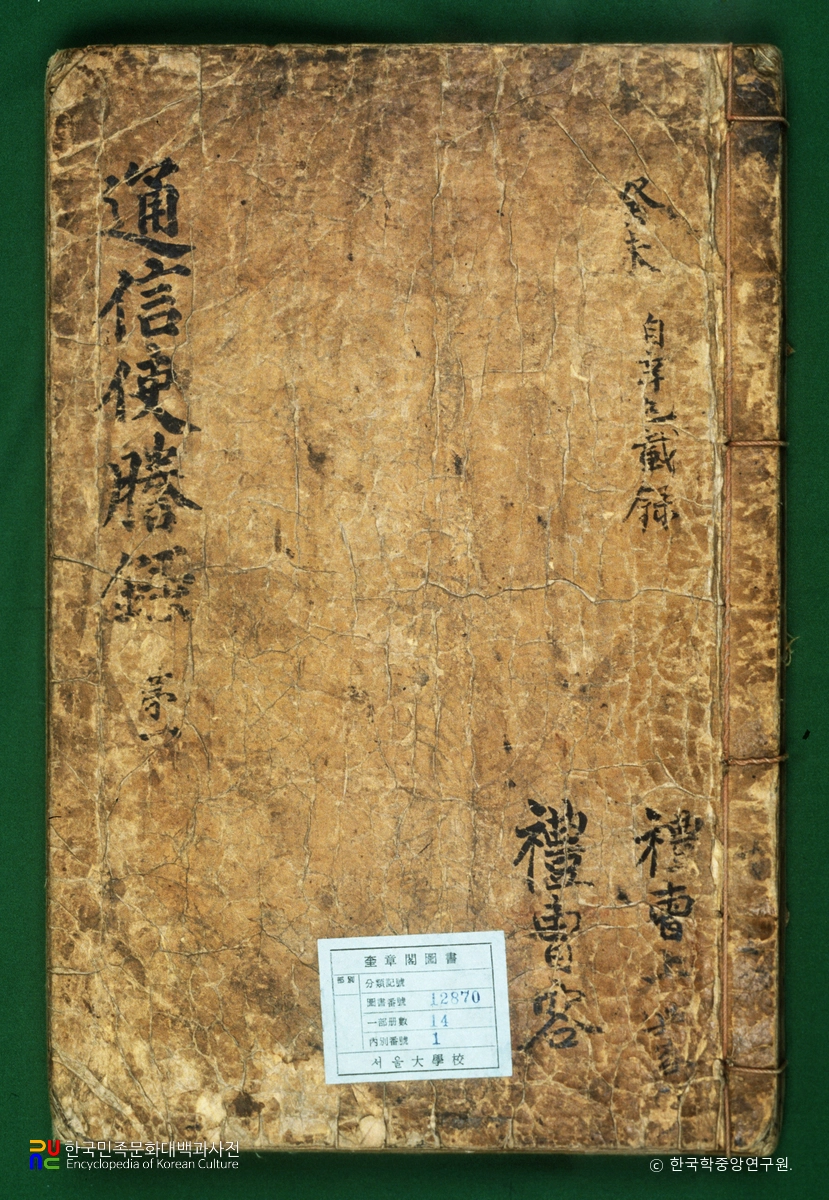 癸未
禮曹
禮曹
通信使謄錄
奎章閣圖書
部別
分類記號
圖書番號 12870
一部册數 14
內別番號 1
서울大學校
한국민족문화대백과사전
Encyclopedia of Korean Culture
© 한국학중앙연구원.